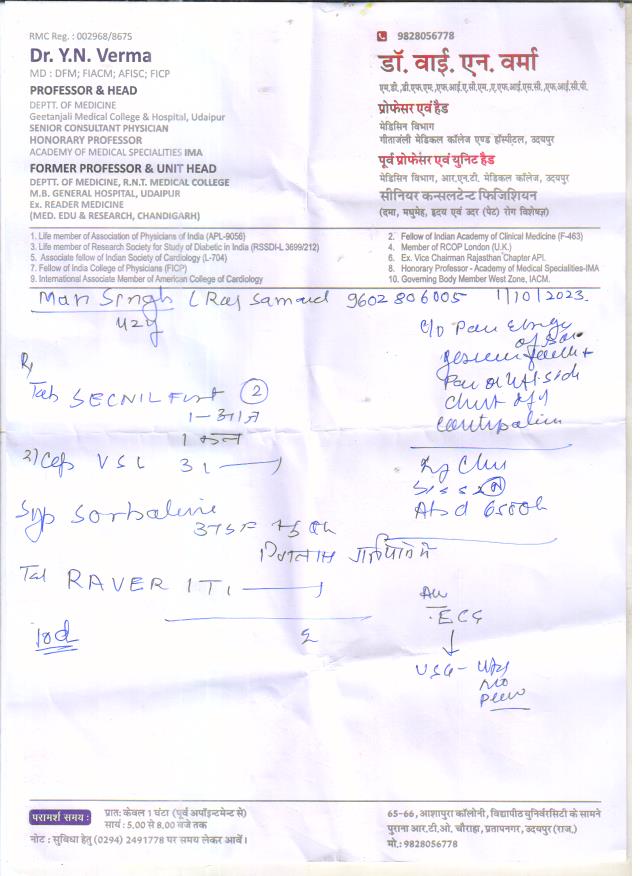 RMC Reg. : 002968/8675
Dr. Y.N. Verma
MD : DFM; FIACM; AFISC; FICP
PROFESSOR & HEAD
DEPTT. OF MEDICINE
Geetanjali Medical College & Hospital, Udaipur
SENIOR CONSULTANT PHYSICIAN
HONORARY PROFESSOR
ACADEMY OF MEDICAL SPECIALITIES IMA
FORMER PROFESSOR & UNIT HEAD
DEPTT. OF MEDICINE, R.N.T. MEDICAL COLLEGE
M.B. GENERAL HOSPITAL, UDAIPUR
Ex. READER MEDICINE
(MED. EDU & RESEARCH, CHANDIGARH)
9828056778
डॉ. वाई. एन. वर्मा
एम.डी.,डी.एफ.एम.,एफ.आई.ए.सी.एम.,ए.एफ.आई.एस.सी.,एफ.आई.सी.पी.
प्रोफेसर एवं हैड
मेडिसिन विभाग
गीतांजली मेडिकल कॉलेज एण्ड हॉस्पीटल, उदयपुर
पूर्व प्रोफेसर एवं युनिट हैड
मेडिसिन विभाग, आर.एन.टी. मेडिकल कॉलेज, उदयपुर
सीनियर कन्सलटेन्ट फिजिशियन
(दमा, मधुमेह, हृदय एवं उदर (पेट) रोग विशेषज्ञ)
1. Life member of Association of Physicians of India (APL-9056)
3. Life member of Research Society for Study of Diabetic in India (RSSDI-L 3699/212)
5. Associate fellow of Indian Society of Cardiology (L-704)
7. Fellow of India College of Physicians (FICP)
9. International Associate Member of American College of Cardiology
2. Fellow of Indian Academy of Clinical Medicine (F-463)
4. Member of RCOP London (U.K.)
6. Ex. Vice Chairman Rajasthan Chapter API.
8. Honorary Professor - Academy of Medical Specialities-IMA
10. Governing Body Member West Zone, IACM.
Man Singh (Raj Samand 9602806005 1/10/2023.
C/o Pain
Rx
Tab SECNIL Fort 2
1
2) Cap VSL 3 1
Syp Sorbaline
Tab RAVER 1 T1
10d
Pain
Chest
Abd
ECG
USG -
परामर्श समय :
प्रात: केवल 1 घंटा (पूर्व अपॉइन्टमेन्ट से)
सायं : 5.00 से 8.00 बजे तक
नोट : सुविधा हेतु (0294) 2491778 पर समय लेकर आवें।
65-66, आशापुरा कॉलोनी, विद्यापीठ युनिर्वरसिटी के सामने
पुराना आर.टी.ओ. चौराहा, प्रतापनगर, उदयपुर (राज.)
मो.: 9828056778